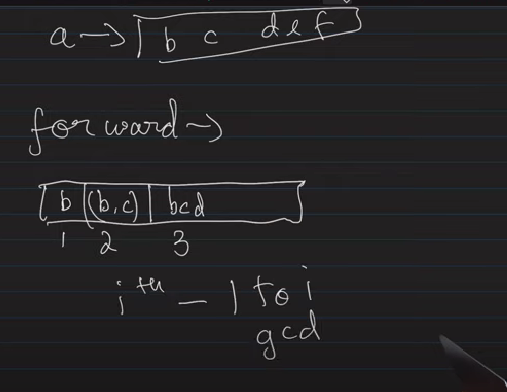 a → b c def
forward →
b (b,c) bcd
1 2 3
ith - 1 to i
gcd